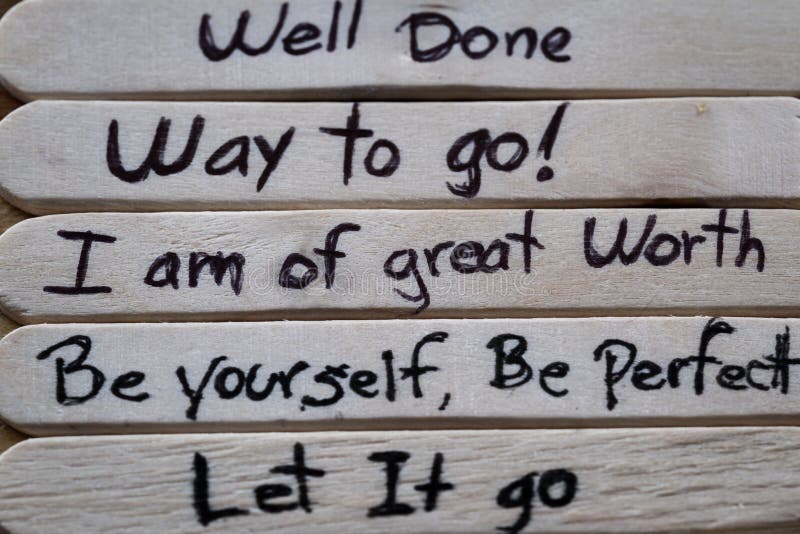 Well Done
Way to go!
I am of great Worth
Be yourself, Be Perfect
Let It go